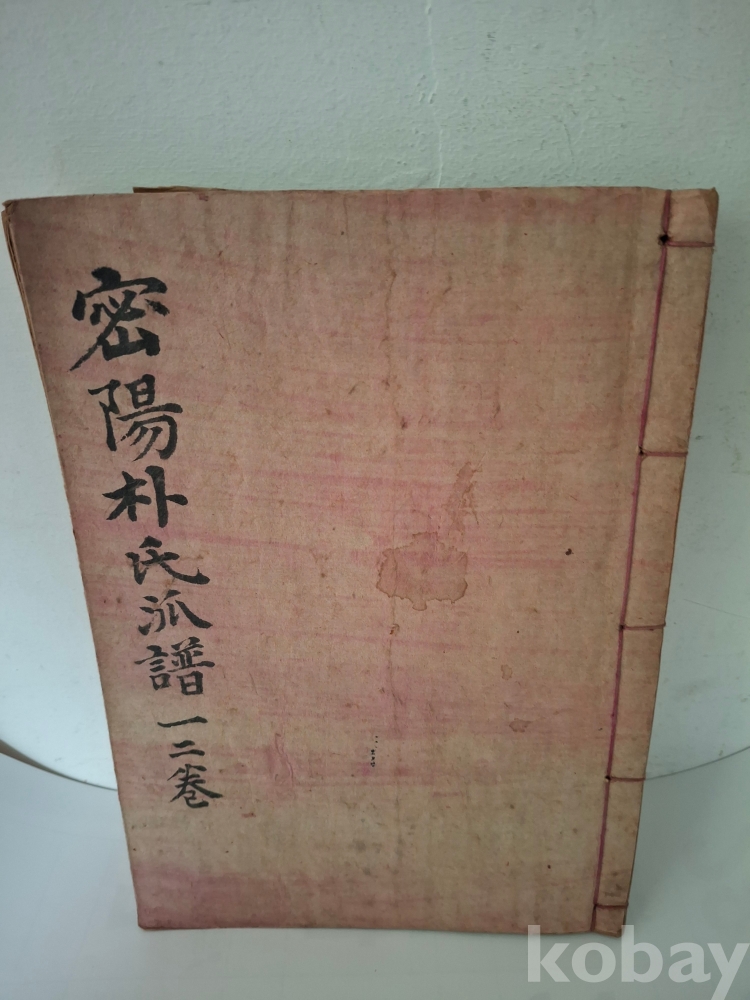 密陽朴氏派譜 一二卷
kobay